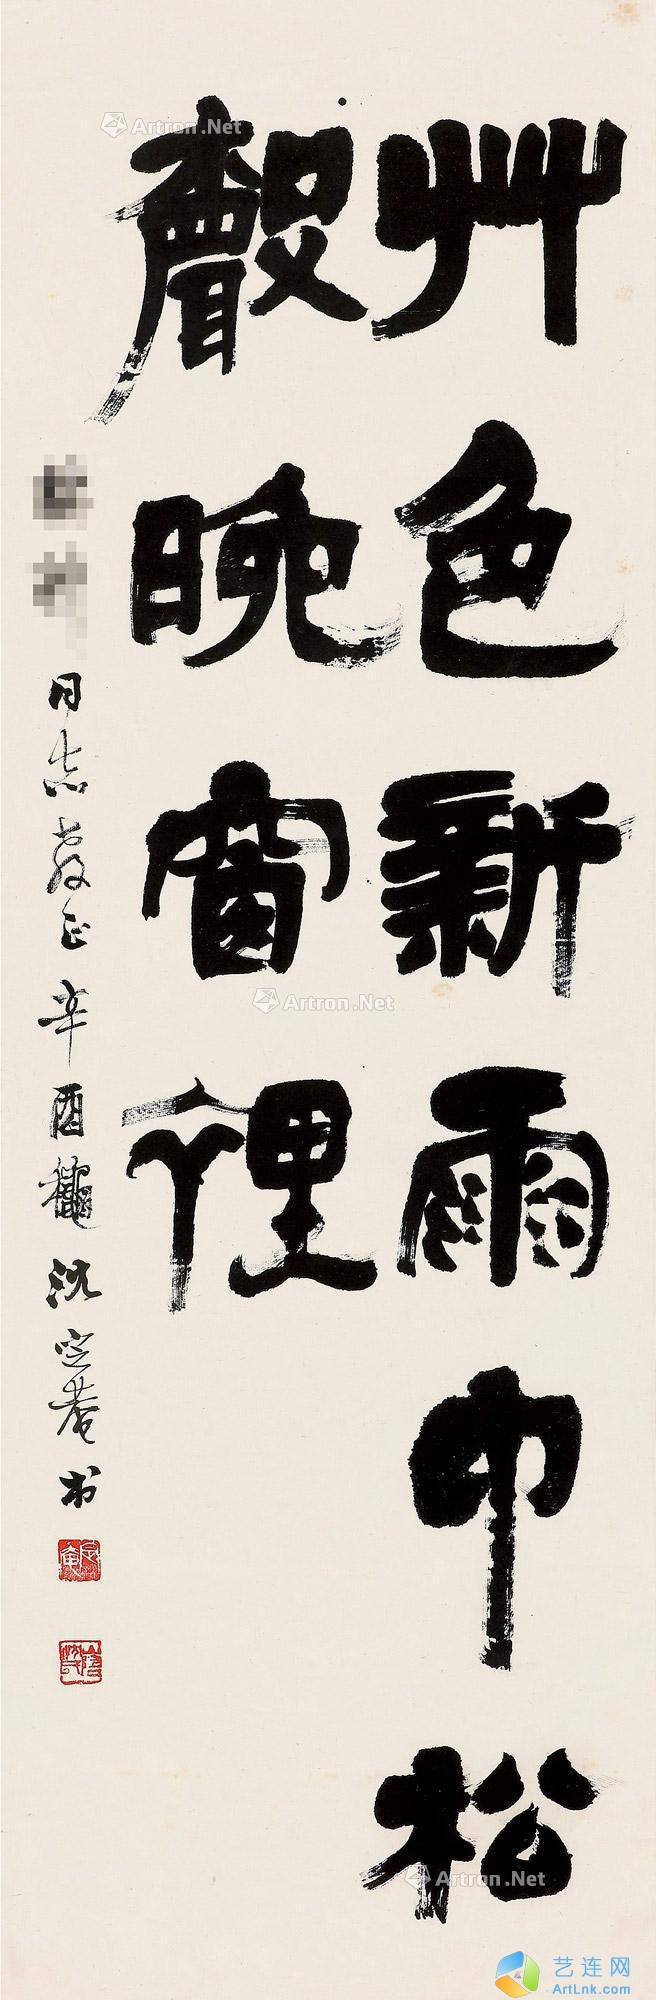 艸色新雨中松
聲晚窗裡
同志教正辛酉龝沈定菴书
Artron.Net
Artron.Net
Artron.Net
艺连网
ArtLnk.com